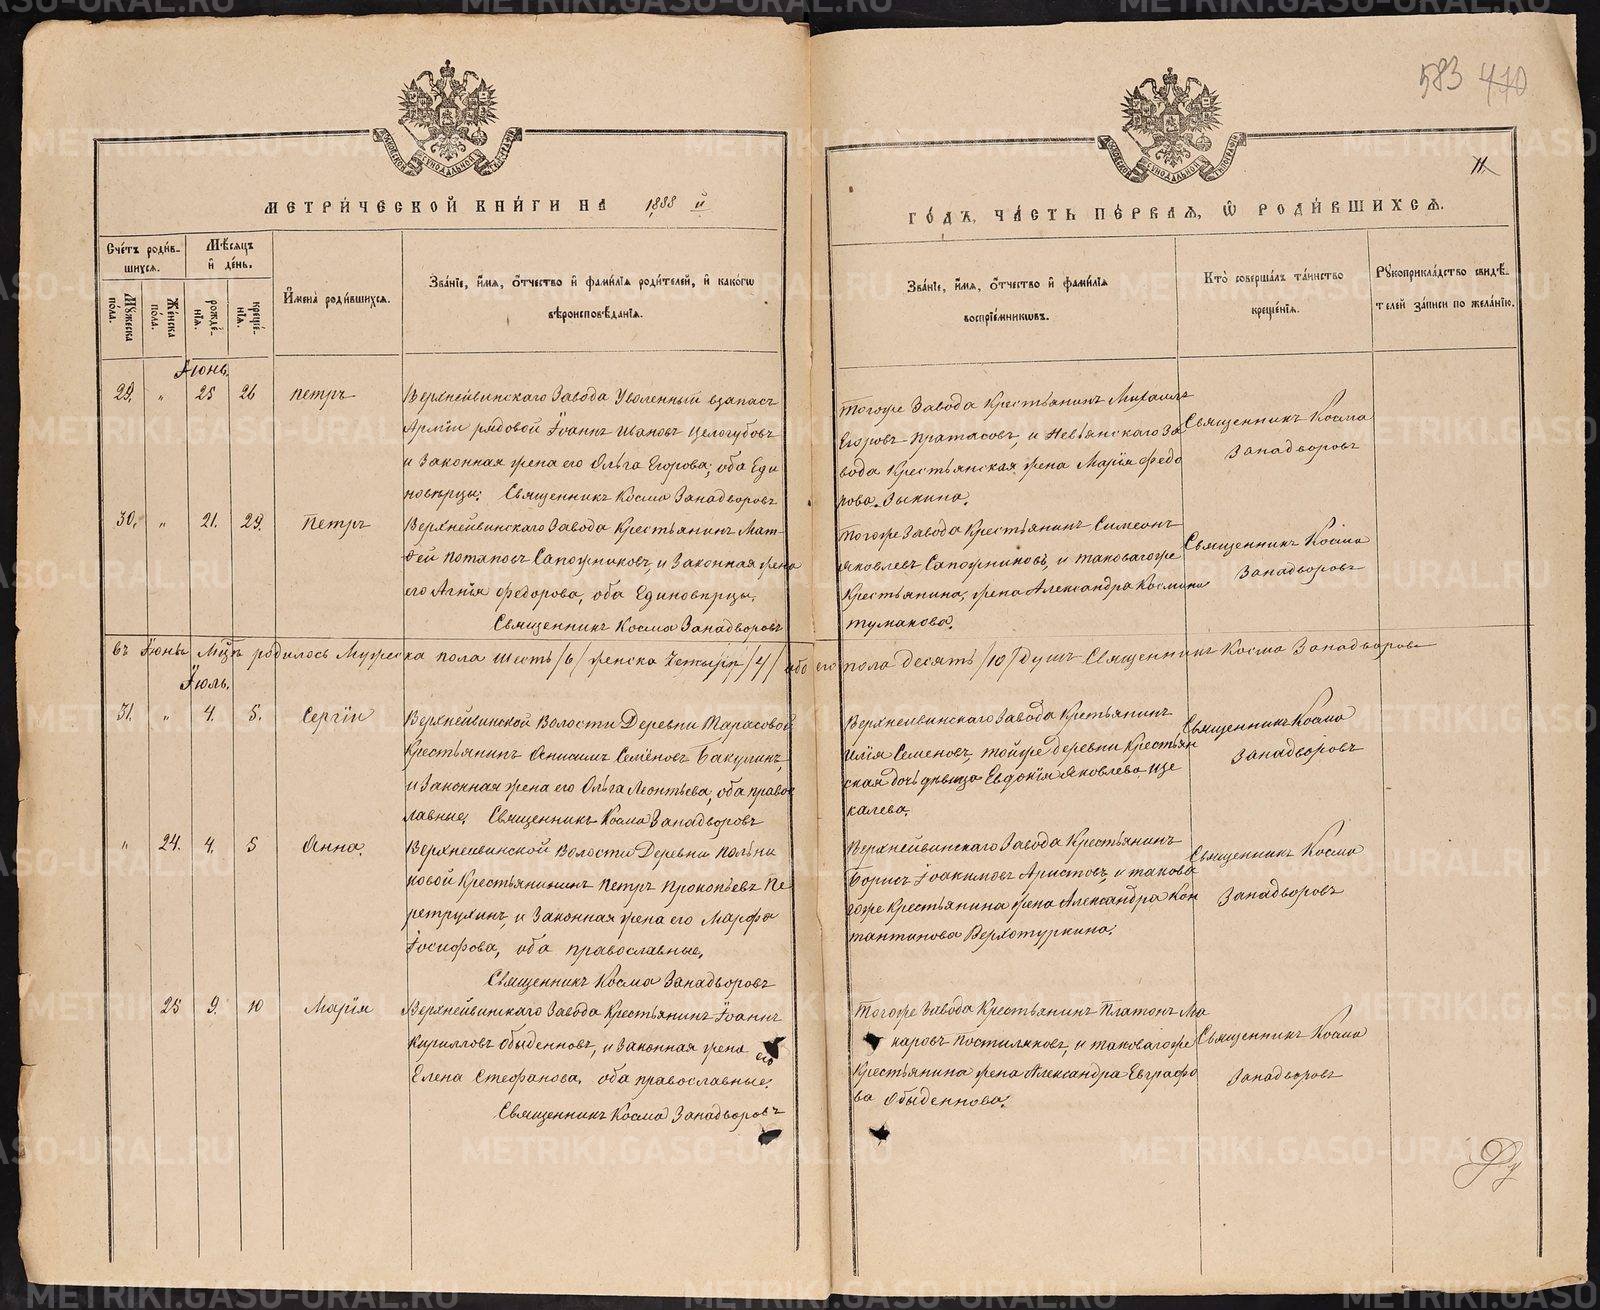 583 470
11
МЕТРИ́ЧЕСКОЙ КНИ́ГИ НА 1888 й
ГО́ДЪ, ЧА́СТЬ ПЕ́РВАЯ, Ѽ РОДИ́ВШИХСЯ.
Сче́тъ роди́в-
шихся.
Мѣ́сяцъ
и҆ де́нь.
Мꙋжеска по́ла.
Же́нска по́ла.
рожде́-
нїя.
креще́-
нїя.
И҆мена̀ роди́вшихся.
Зва́нїе, и҆́мя, о҆́тчество и҆ фами́лїя роди́телей, и҆ како́гѡ
вѣроисповѣ́данїя.
Зва́нїе, и҆́мя, о҆́тчество и҆ фами́лїя
воспрїе́мникѡвъ.
Кто̀ соверша́лъ та́инство
креще́нїя.
Рꙋкоприкла́дство свидѣ́-
телей за́писи по жела́нїю.
Іюнь.
29. „ 25 26 Петръ
Верхнейвинскаго Завода Уволенный взапасъ
Арміи рядовой Іоаннъ Ивановъ Целогубовъ
и Законная жена его Ольга Егорова; оба Еди
новѣрцы; Священникъ Косма Занадворовъ
Тогоже Завода Крестьянинъ Михаилъ
Егоровъ Пратасовъ, и Невьянскаго За
вода Крестьянская жена Марія Федо
рова Зыкина.
Священникъ Косма
Занадворовъ
30. „ 21. 29. Петръ
Верхнейвинскаго Завода Крестьянинъ Мат-
фей Потаповъ Сапожниковъ, и Законная жена
его Агнія Федорова, оба Единовѣрцы.
Священникъ Косма Занадворовъ
Тогоже Завода Крестьянинъ Симеонъ
Яковлевъ Сапожниковъ, и таковагоже
Крестьянина, жена Александра Космина
Тумакова.
Священникъ Косма
Занадворовъ
Въ Іюнь Мцъ родилось Мужеска пола шесть /6/ женска Четыри /4/ обоего пола десять /10/ душъ Священникъ Косма Занадворовъ
Іюль.
31. „ 4. 5. Сергіи
Верхнейвинской Волости Деревни Тарасовой
Крестьянинъ Анисимъ Семёновъ Бакулинъ,
и Законная жена его Ольга Леонтьева, оба право
лавные, Священникъ Косма Занадворовъ
Верхнейвинскаго Завода Кретьянинъ
Илія Семеновъ, тойже деревни Крестьян
ская дочь дѣвица Евдокія Яковлева Ще
калева.
Священникъ Косма
Занадворовъ
„ 24. 4. 5 Анна.
Верхнейвинской Волости Деревни Польни
ковой Крестьянининъ Петръ Прокопьевъ Пе
ретрухинъ, и Законная жена его Марфа
Іосифова, оба православные,
Священникъ Косма Занадворовъ
Верхнейвинскаго Завода Крестьянинъ
Борисъ Іоакимовъ Аристовъ, и такова
гоже Крестьянина жена Александра Кон
тантинова Верхотуркина.
Священникъ Косма
Занадворовъ
25 9. 10 Марія
Верхнейвинскаго Завода Крестьянинъ Іоаннъ
Кирилловъ Обыденновъ, и Законная жена его
Елена Стефанова, оба православные;
Священникъ Косма Занадворовъ
Тогоже Завода Крестьянинъ Платонъ Ма
каровъ Постиляковъ, и таковагоже
Крестьянина жена Александра Евграфо
ва Обыденнова.
Священникъ Косма
Занадворовъ
METRIKI.GASO-URAL.RU